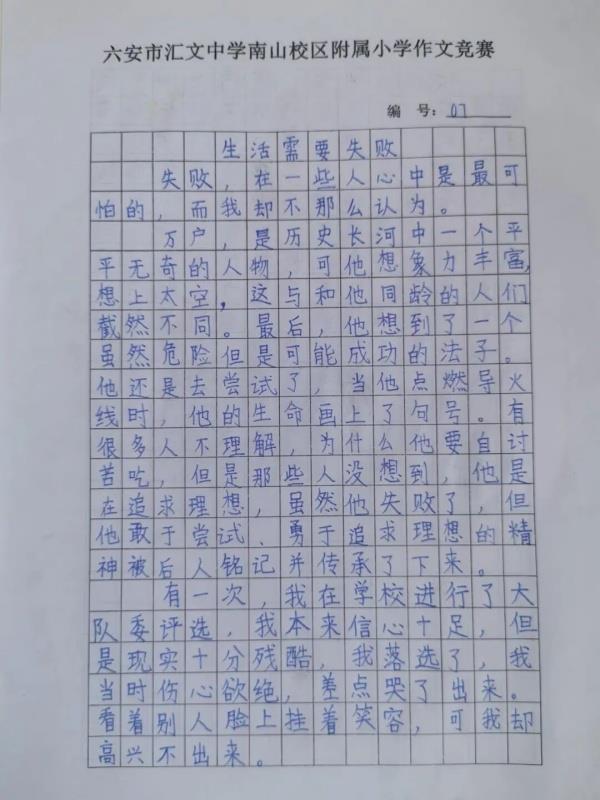 六安市汇文中学南山校区附属小学作文竞赛
编 号：07
生活需要失败
失败，在一些人心中是最可
怕的，而我却不那么认为。
万户，是历史长河中一个平
平无奇的人物，可他想象力丰富，
想上太空，这与和他同龄的人们
截然不同。最后，他想到了一个
虽然危险但是可能成功的法子。
他还是去尝试了，当他点燃导火
线时，他的生命画上了句号。有
很多人不理解，为什么他要自讨
苦吃，但是那些人没想到，他是
在追求理想，虽然他失败了，但
他敢于尝试、勇于追求理想的精
神被后人铭记并传承了下来。
有一次，我在学校进行了大
队委评选，我本来信心十足，但
是现实十分残酷，我落选了，我
当时伤心欲绝，差点哭了出来。
看着别人脸上挂着笑容，可我却
高兴不出来。